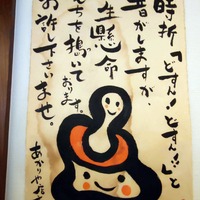 時折「どすん!どすん!」と
音がますが、
生懸命
もちを搗いて
おります。
お許し下さいませ。
あかりや店